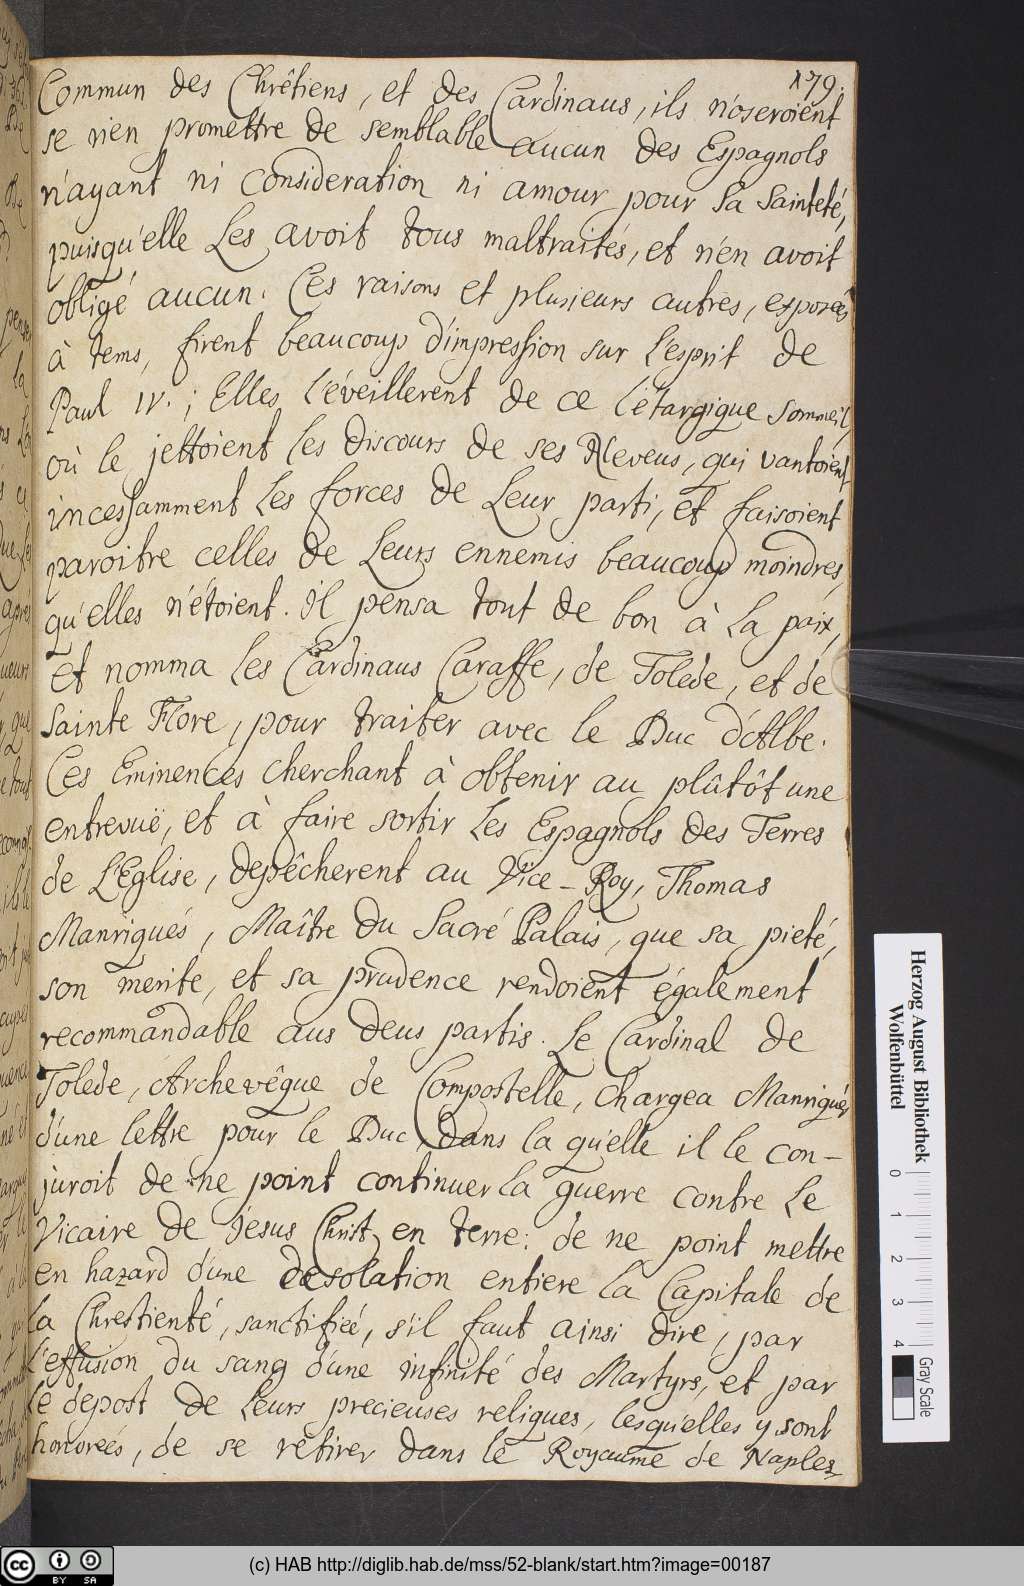 179.
Commun des Chrêtiens, et des Cardinaus, ils n'oseroient
se rien promettre de semblable aucun des Espagnols
n'ayant ni consideration ni amour pour sa Sainteté,
puisqu'elle les avoit tous maltraités, et n'en avoit
obligé aucun. Ces raisons et plusieurs autres, exposées
à tems, firent beaucoup d'impression sur l'esprit de
Paul IV.; Elles l'éveillerent de ce létargique sommeil,
où le jettoient les discours de ses Neveus, qui vantoient
incessamment les forces de leur parti, et faisoient
paroitre celles de leurs ennemis beaucoup moindres,
qu'elles n'étoient. Il pensa tout de bon à la paix,
et nomma les Cardinaus Caraffe, de Tolede, et de
Sainte Flore, pour traiter avec le Duc d'Albe.
Ces Eminences cherchant à obtenir au plûtôt une
entrevuë, et à faire sortir les Espagnols des Terres
de L'Eglise, depêcherent au Vice-Roy, Thomas
Manriqués, Maître du Sacré Palais, que sa pieté,
son merite, et sa prudence rendoient également
recommandable aus deus partis. Le Cardinal de
Tolede, Archevêque de Compostelle, chargea Manriqués
d'une lettre pour le Duc, dans la quelle il le con-
juroit de ne point continuer la guerre contre le
Vicaire de Jesus Christ en terre: de ne point mettre
en hazard d'une desolation entiere la Capitale de
la Chrestienté, sanctifieé, s'il faut ainsi dire, par
l'effusion du sang d'une infinité des Martyrs, et par
le depost de leurs precieuses reliques, lesquelles y sont
honoreés, de se retirer dans le Royaume de Naples,
Herzog August Bibliothek
Wolfenbüttel
0 1 2 3 4
Gray Scale
cc BY SA
(c) HAB http://diglib.hab.de/mss/52-blank/start.htm?image=00187